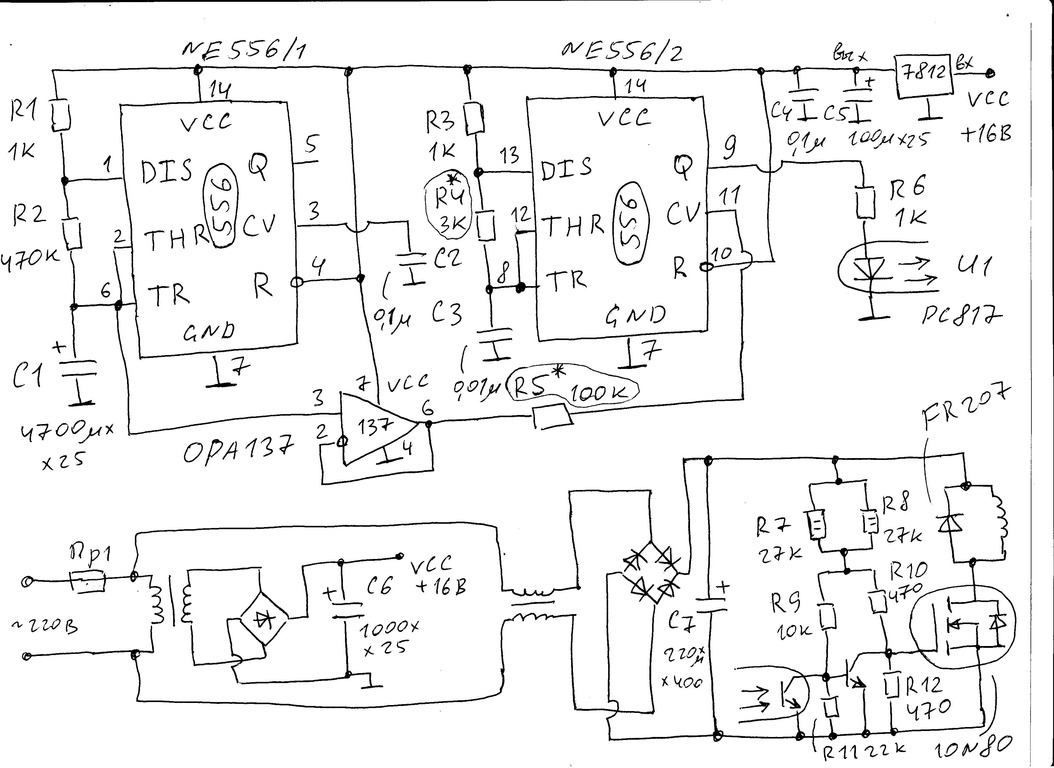 NE556/1
NE556/2
R1
1K
R2
470K
C1
+
4700μx
x25
14
VCC
1
DIS
5
Q
2
THR
556
CV
3
6
TR
R
4
GND
7
C2
0,1μ
R3
1K
R4*
3K
C3
0,01μ
14
VCC
13
DIS
Q
9
12
THR
556
CV
11
8
TR
R
10
GND
7
C4
0,1μ
C5
+
100μx25
вых
7812
вх
VCC
+16В
R6
1K
U1
PC817
OPA137
3
2
7
VCC
137
6
4
R5*
100K
Пр1
~220В
C6
+
1000x
x25
VCC
+16В
C7
+
220μ
x400
R7
27K
R8
27K
R9
10K
R10
470
R11 22K
R12
470
FR207
10N80